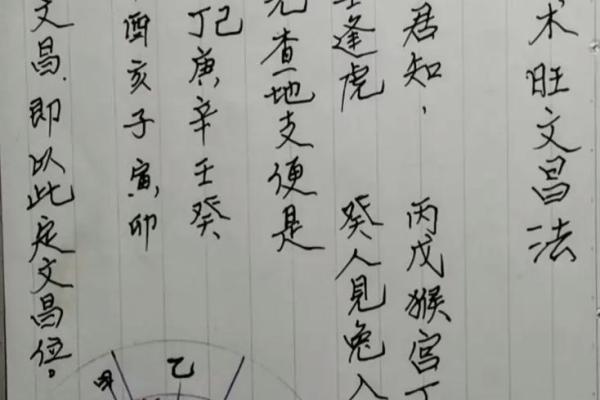 术旺文昌法
君知，
丙戊猴宫丁
逢虎
癸人见兔入
查地支便是
丁己庚辛壬癸
酉亥子寅卯
文昌，即以此定文昌位。
甲
乙